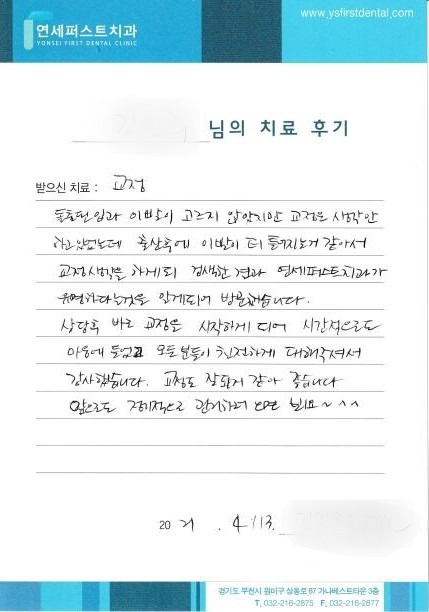 www.ysfirstdental.com
연세퍼스트치과
YONSEI FIRST DENTAL CLINIC
님의 치료 후기
받으신 치료 : 교정
돌출된 입과 이빨이 고르지 않았지만 교정은 생각만
하고있었는데 출산후에 이빨이 더 틀어지는거 같아서
교정생각을 하게되 검색한 결과 연세퍼스트치과가
유명하다는것을 알게되어 방문했습니다.
상담후 바로 교정을 시작하게 되어 시간적으로도
마음에 들었고 모든분들이 친절하게 대해주셔서
감사했습니다. 교정도 잘되거 같아 좋습니다
앞으로도 정기적으로 관리하며 오면 될요~ ^^
2021 . 4/13.
경기도 부천시 원미구 상동로 87 가나베스트타운 3층
T. 032-216-2875 F. 032-216-2877